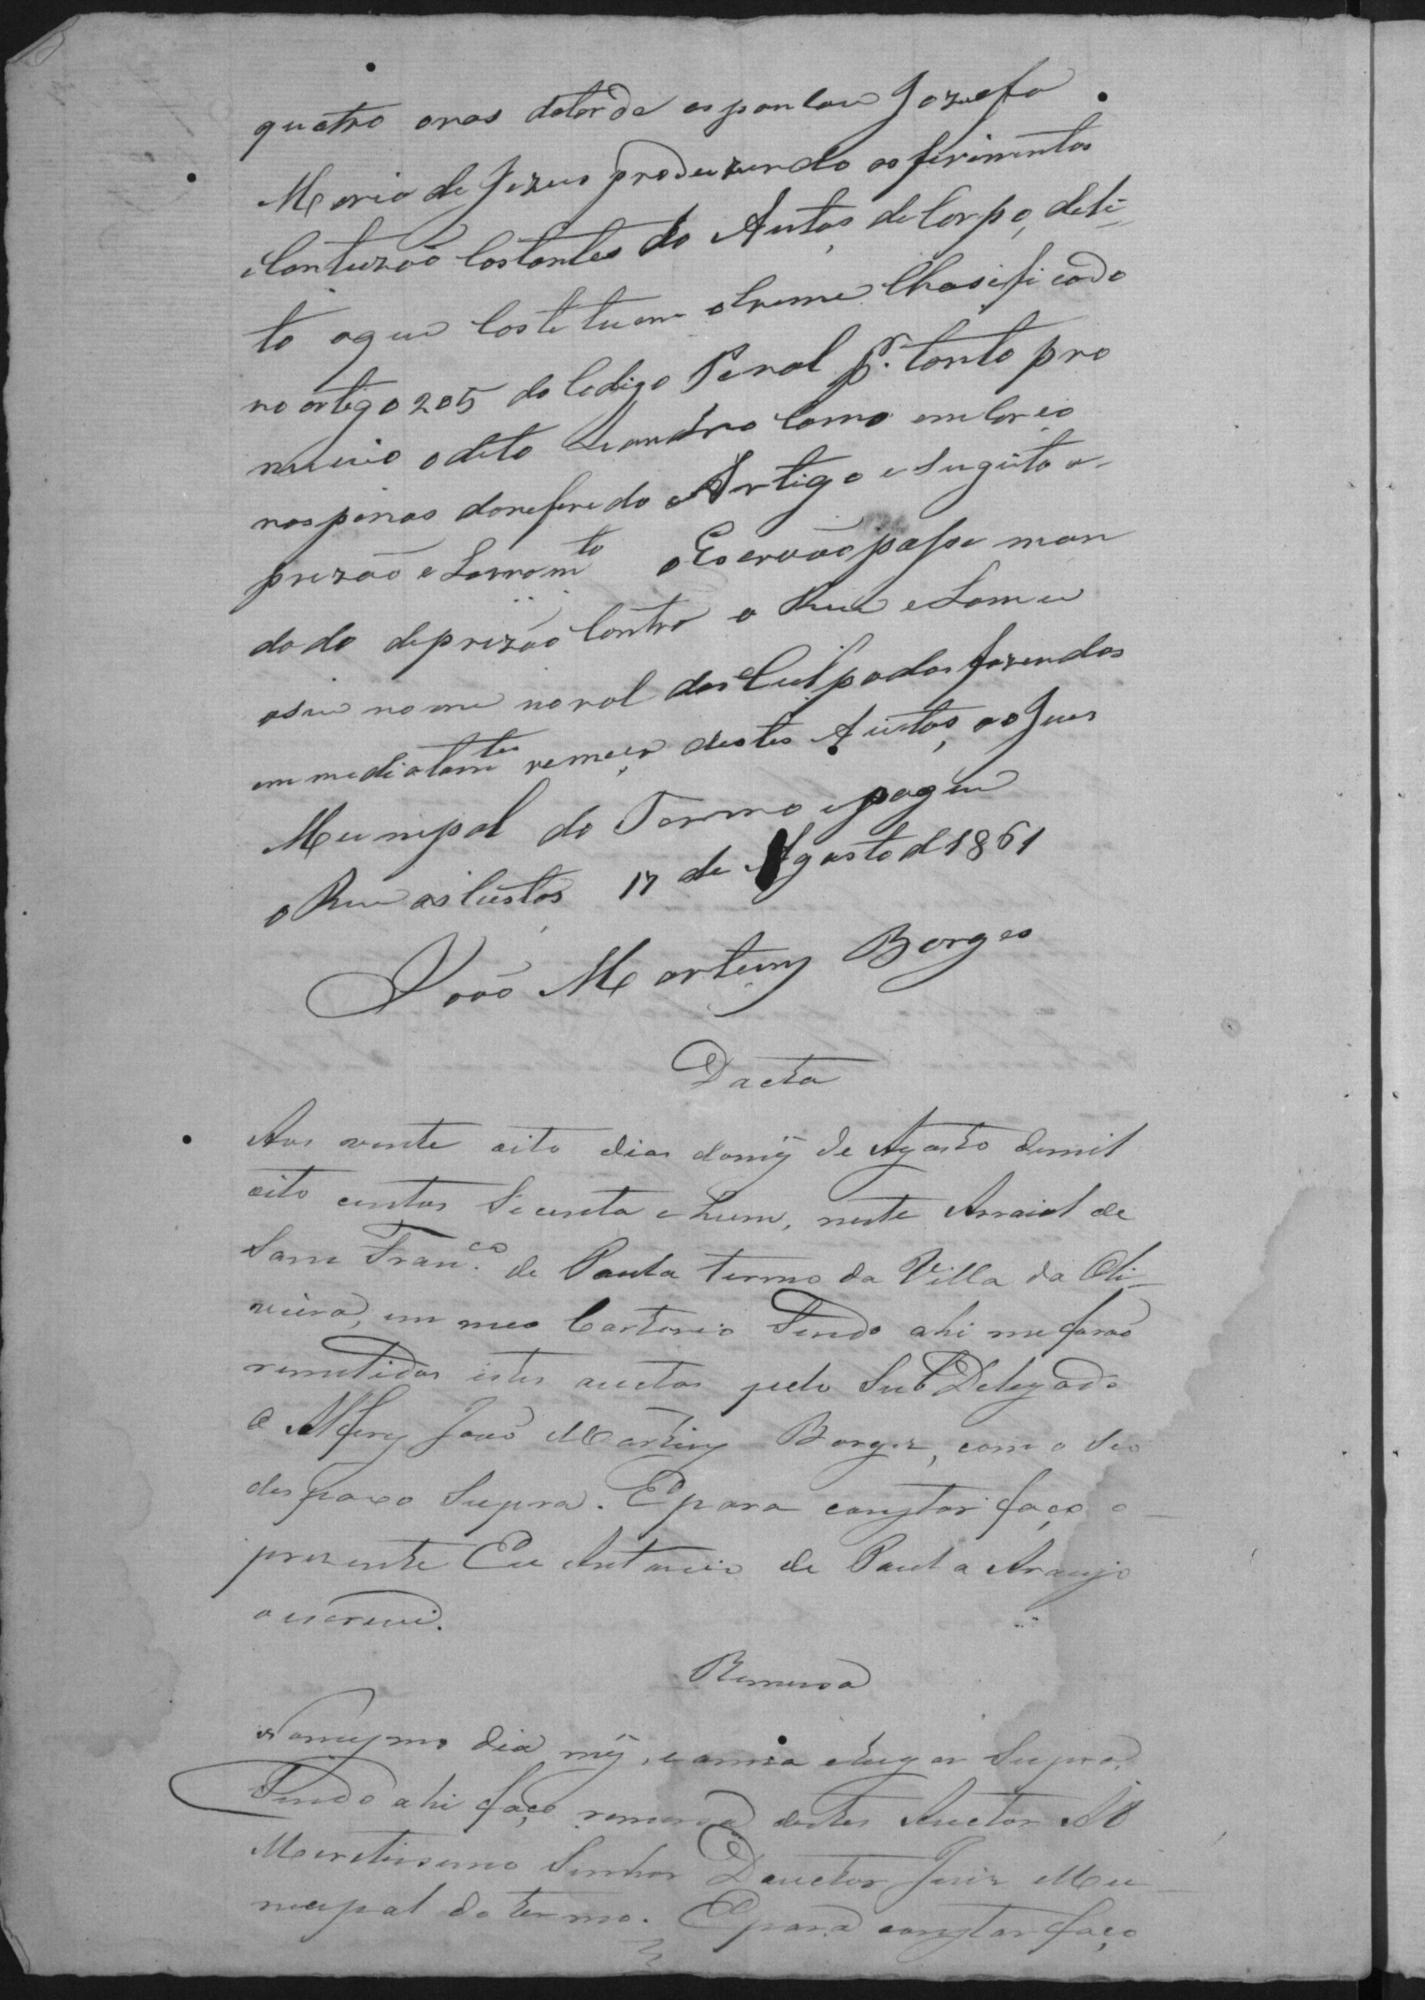 quatro oras datarde espancou Jozefa
Maria de Jezus produzendo os ferimentos
e Contuzaõ Costantes do Autos de Corpo, deli-
to o que Costetuem o Creme Chasificado
no artego 205 do Codigo Penal p.r tanto pro
nuncio o dito Leandro como emCurço
nas penas do refere do Artigo e sugeito a
prizaõ e Livram.to o Escrivaõ passe man
dado de prizaõ Contra o Reu e Lance
oseu nome no rol dos Culpados fazendos
emmediatamte remeça destes Autos, ao Jues
Municipal do Termo e pague
o Reu as Custas 17 de Agosto d 1861
Joaõ Martins Borges
Dacta
Aos vente oito dias domez de Agosto demil
oito centos Secenta e hum, neste Arraial de
Sam Fran.co de Paula termo da Villa da Oli-
veira, em meo Cartorio Sendo ahi me foraõ
remetidos estes auctos pelo Sub Delegado
o Alferes Joaõ Martins Borges, com o seo
despaxo Supra. E para constar faço o
prezente Eu Antonio de Paula Araujo
o escrevi.
Remessa
No mesmo dia mez, e anno e lugar Supra,
Sendo ahi faço remessa destes Auctos Ao
Meretissimo Senhor Douctor Juiz Mu-
necipal do termo. E para constar faço